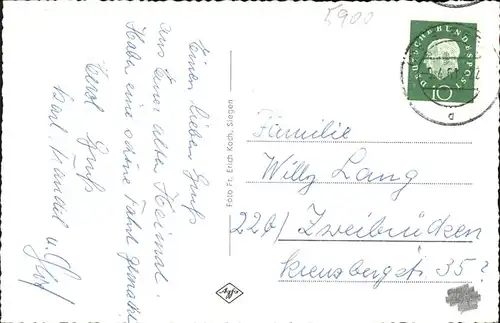 5900
DEUTSCHE BUNDESPOST
10
d
Einen lieben Gruß
aus Eurer alten Heimat.
Habe eine schöne Fahrt gemacht.
Euch Grüß
Karl, u.
Foto Fr. Erich Koch, Siegen
Agfa
Familie
Willy Lang
22b/ Zweibrücken
Kreuzbergstr. 35?